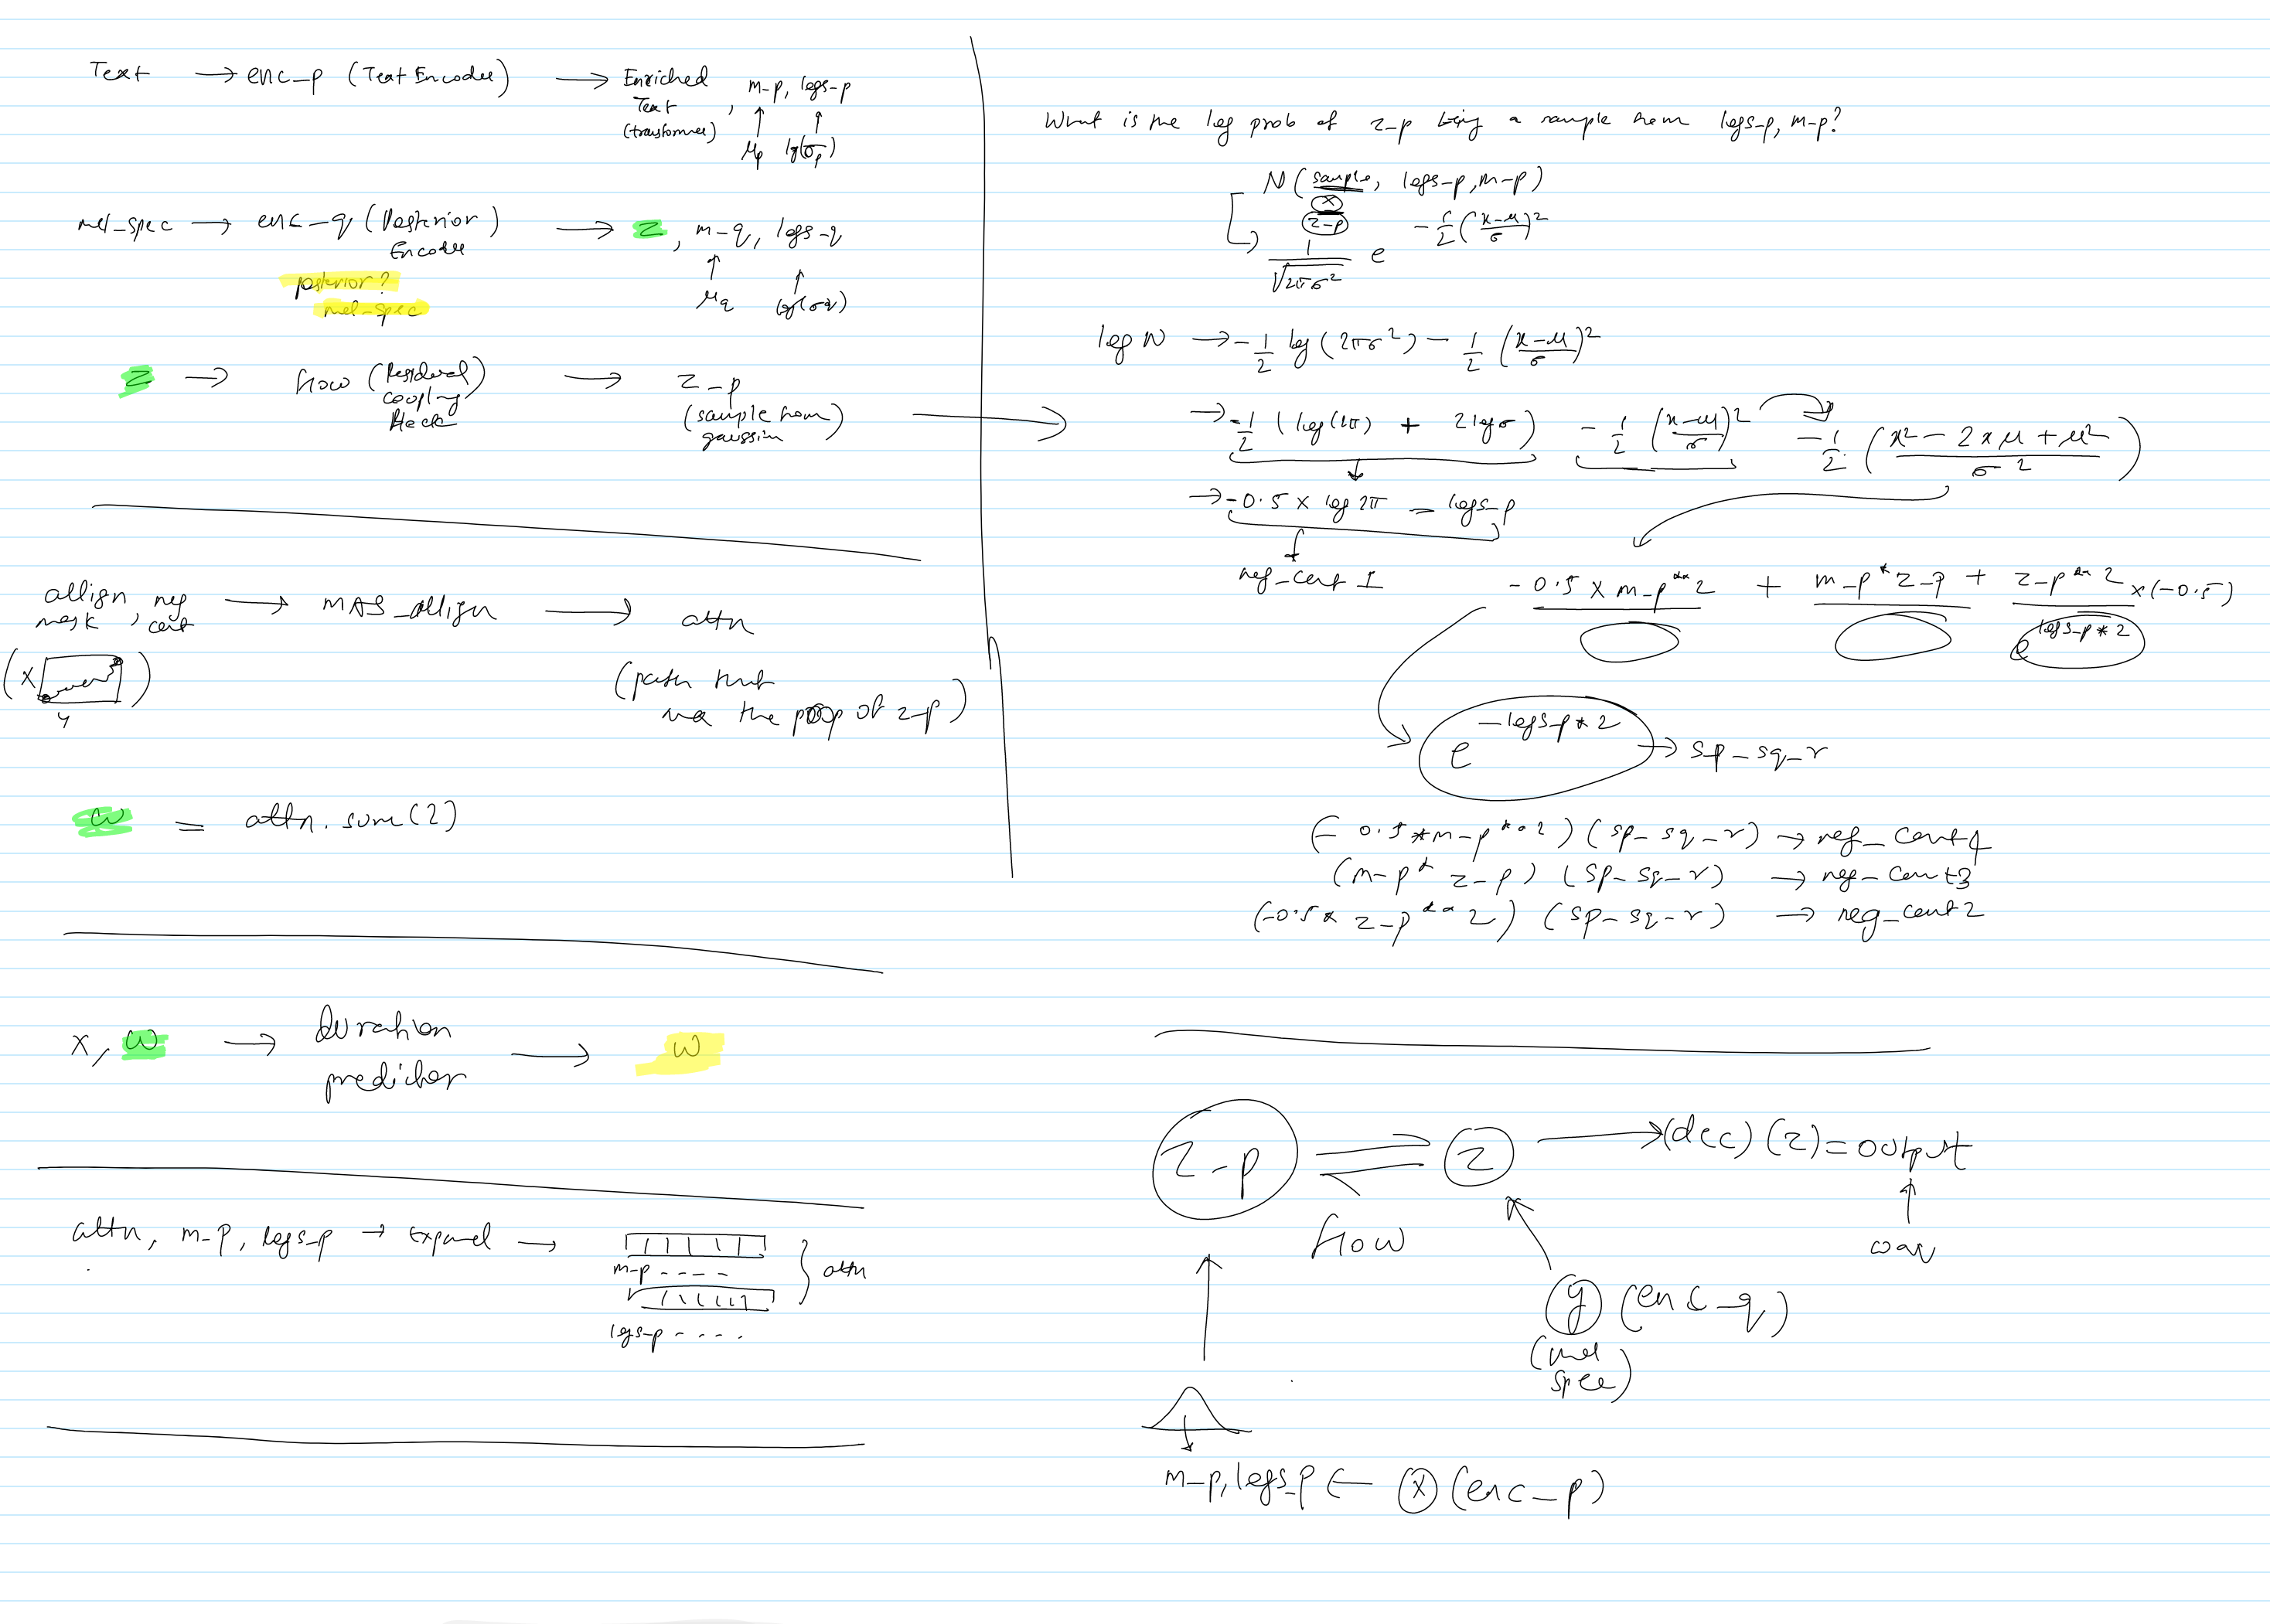 Text → enc_p (Text Encoder) → Enriched Text (transformer), m-p, logs-p
μp log(σp)
mel_spec → enc_q (Posterior Encoder → z, m-q, logs-q
posterior?
mel-spec
μq log(σq)
z → flow (Residual Coupling Block → z_p
(sample from gaussian)
allign mask, neg cent → MAS_allign → attn
(X
y)
(path that max the prop of z-p)
ω = attn.sum(2)
x, ω → Duration predictor → w
attn, m-p, logs-p → Expand →
m-p ----
logs-p ----
} attn
What is the log prob of z-p being a sample from logs-p, m-p?
N(sample, logs-p, m-p)
x
z-p
1/√2πσ² e -1/2(x-μ/σ)²
log N → -1/2 log(2πσ²) - 1/2 (x-μ/σ)²
→ -1/2 (log(2π) + 2logσ) -1/2 (x-μ/σ)² -1/2 (x² - 2xμ + μ²/σ²)
→ -0.5 × log 2π - logs_p
neg_cent 1
-0.5 × m_p**2 + m_p*z-p + z-p**2 ×(-0.5)
e logs-p*2
e -logs-p*2 → sp_sq_r
(-0.5*m-p**2) (sp-sq-r) → neg_cent4
(m-p* z-p) (sp-sq-r) → neg-cent3
(-0.5* z-p**2) (sp-sq-r) → neg_cent2
z-p z → (dec)(z) = output
flow
wav
y (enc-q)
(mel spec)
m-p, logs_p ← x (enc_p)